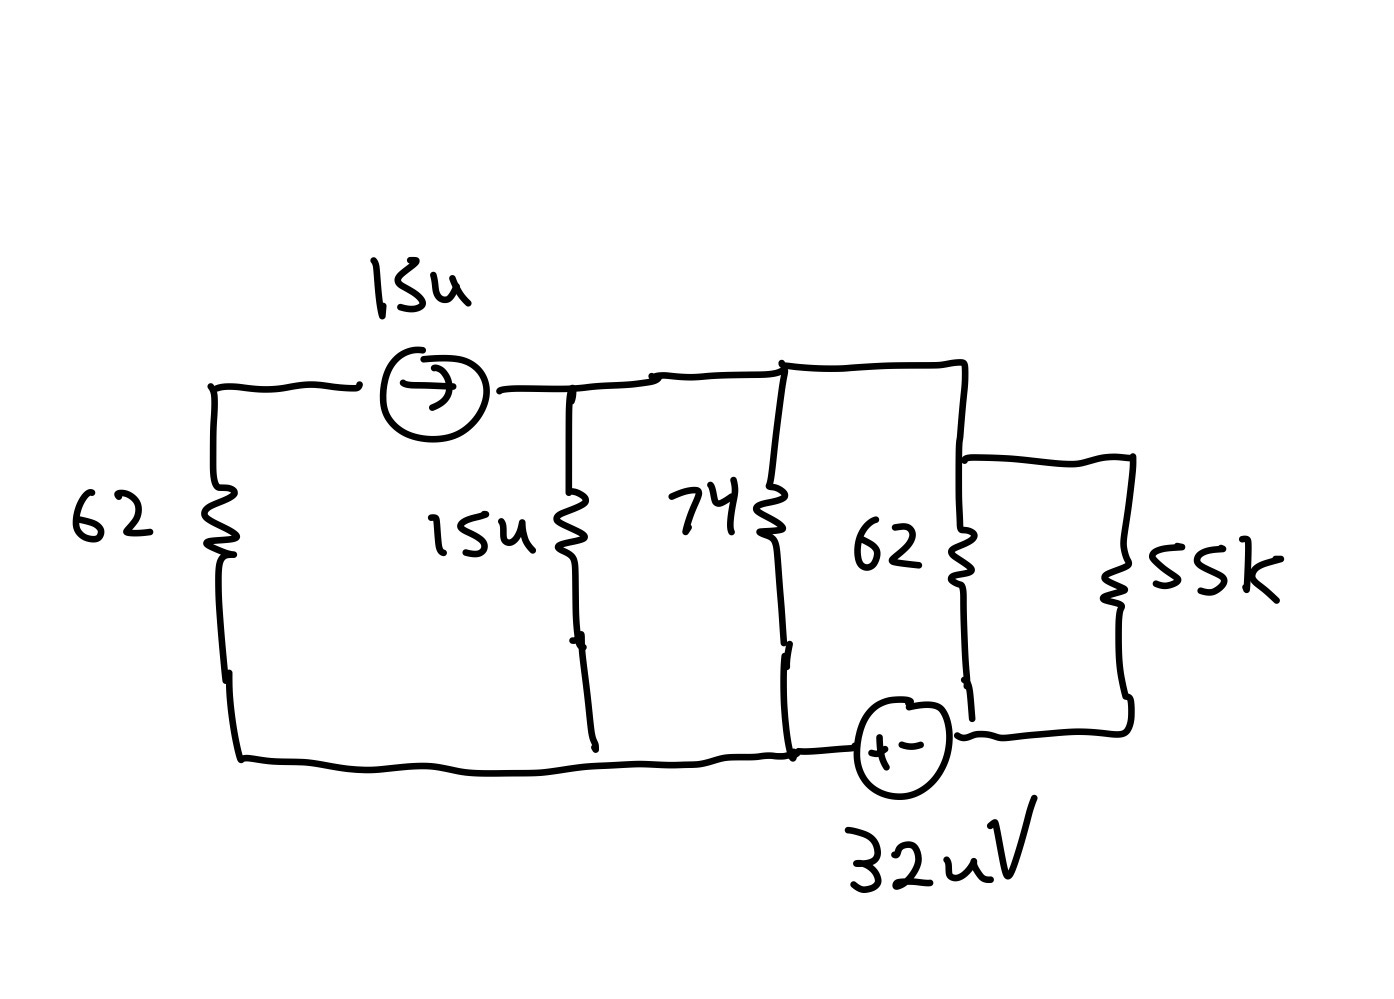 15u
62
15u
74
62
55k
+ -
32uV